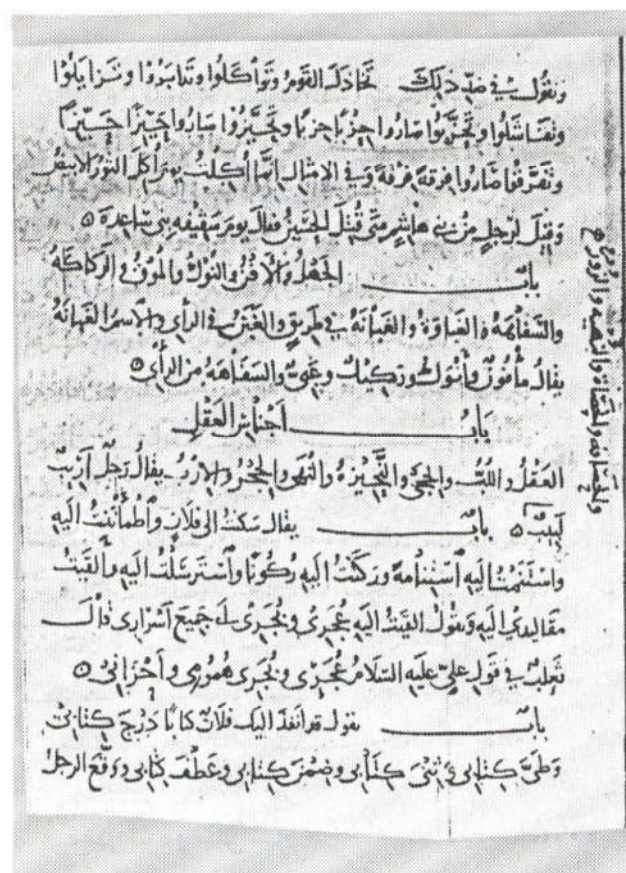 وتقول في ضد ذلك تخاذل القوم وتواكلوا وتدابروا وتزايلوا
وتفاشلوا وتحزّبوا صاروا حِزْبًا حزبًا وتحيّزوا صاروا حَيّزًا حَيّزًا
وتفرّقوا صاروا فرقة فرقة وفي الامثال انما أُكِلْتُ يوم أُكل الثور الابيض
وقيل لرجل من بني هاشم متى قُتل الحسين فقال يوم سقيفه بني ساعدة ه
باب الجهل والأفن والنوك والموق والركاكة
والسفاهة والغباوة والغبانة في طريق والغبن في الرأي والاسم الغبانة
يقال مأفون وأنوك وركيك وغبيّ والسفاهة من الرأي ه
باب أجناس العقل
العقل واللب والحجى والنحيزة والنهى والحجر والارب يقال رجل أريب
لبيب ه باب يقال سكنت الى فلان واطمأننت اليه
واستنمت اليه استنامة وركنت اليه ركونًا واسترسلت اليه وألقيت
مقاليدي اليه وتقول القيت اليه عُجَرى وبُجَرى أي جميع أسراري قال
ثعلب في قول علي عليه السلام عُجَري وبُجَري همومي وأحزاني ه
باب يقول قد انفذ اليك فلان كتابا دَرْجَ كتابي
وطيّ كتابي وفي ثِنْيَ كتابي وضمن كتابي وعطف كتابي ووقّع الرجل